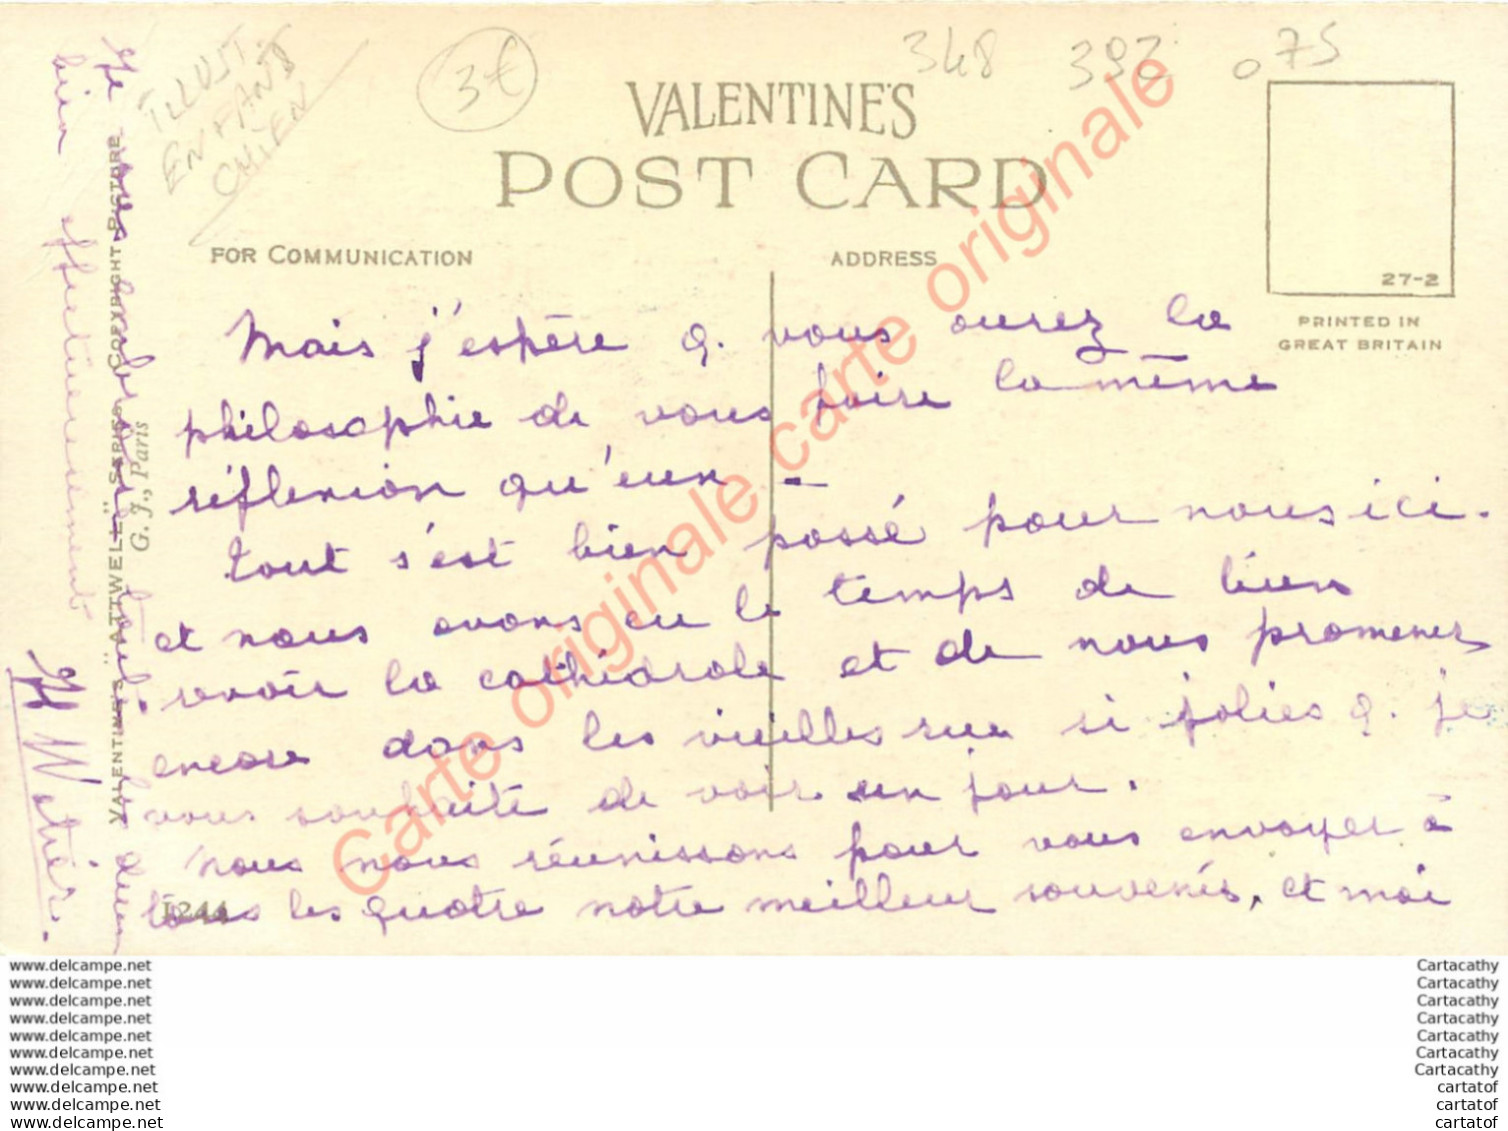 ILLUST
ENFANTS
CHIEN
3€
348 392 075
VALENTINE'S
POST CARD
FOR COMMUNICATION
ADDRESS
27-2
PRINTED IN
GREAT BRITAIN
Mais j'espère q. vous aurez la
philosophie de vous faire la même
réflexion qu'eux -
tout s'est bien passé pour nous ici.
et nous avons eu le temps de bien
revoir la cathédrale et de nous promener
encore dans les vieilles rues si jolies q. je
vous souhaite de voir un jour.
nous nous réunissons pour vous envoyer à
tous les quatre notre meilleur souvenir, et moi
1244
Je vous
bien affectueusement
VALENTINE'S "ATTWELL" SERIES COPYRIGHT PICTURE
G. J., Paris
Carte originale carte originale
www.delcampe.net
www.delcampe.net
www.delcampe.net
www.delcampe.net
www.delcampe.net
www.delcampe.net
www.delcampe.net
www.delcampe.net
www.delcampe.net
www.delcampe.net
Cartacathy
Cartacathy
Cartacathy
Cartacathy
Cartacathy
Cartacathy
Cartacathy
cartatof
cartatof
cartatof